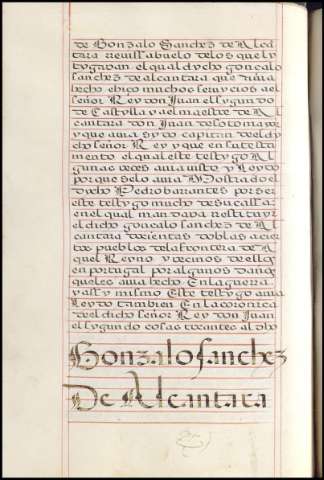 de Gonzalo Sanchez de Alca
tara revissabuelo de los que ly
tygavan el qual dycho goncalo
sanchez de alcantara que avia
hecho ehico muchos serviçios ael
señor Rey don Juan el sygundo
de Castylla y ael maestre de Al
cantara don Juan de sotomayor
y que avia sydo capitan del dy
cho señor Rey y que en su testa
mento el qual este testygo Al
gunas veçes avia visto y Leydo
por que se lo avia Mostrado el
dycho Pedro barantes por ser
este testygo mucho de su cassa
en el qual mandava restituyr
el dicho goncalo sanchez de Al
cantara doçientas doblas a çier
tos pueblos de la frontera de A
quel Reyno y veçinos de ellos
en portugal por algunos daños
que les avia hecho En la guerra
y assy mismo Este testygo avia
Leydo tambien En la coronica
del dicho señor Rey don Juan
el sygundo cosas tocantes al dho
Gonzalo sanchez
De Alcantara